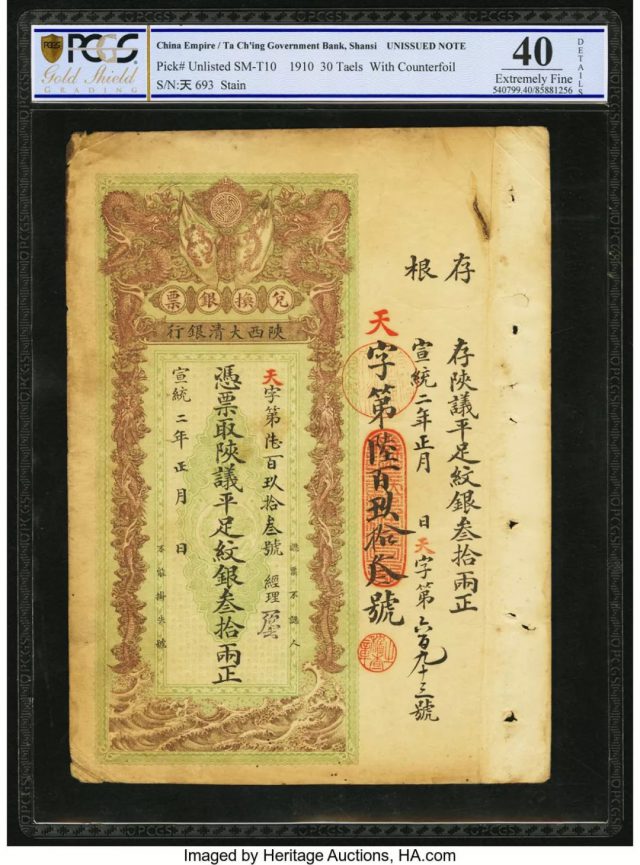 PCGS
Gold Shield
GRADING
China Empire / Ta Ch'ing Government Bank, Shansi UNISSUED NOTE
Pick# Unlisted SM-T10 1910 30 Taels With Counterfoil
S/N:天 693 Stain
40
Extremely Fine
540799.40/85881256
DETAILS
存根
存陝議平足紋銀叁拾兩正
宣統二年正月 日 天字第六百九十三號
天字第陸百玖拾叁號
票銀換兌
行銀清大西陝
天字第陸百玖拾叁號 經理
認票不認人
憑票取陝議平足紋銀叁拾兩正
宣統二年正月 日
不能掛失號
Imaged by Heritage Auctions, HA.com